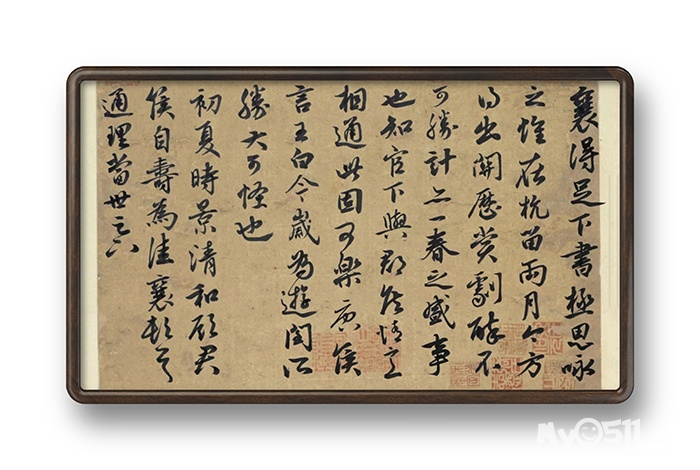 襄得足下書極思咏
之懷在杭留兩月今方
得出關歷賞劇醉不
可勝計亦一春之盛事
也知官下與郡侯情意
相通此固可樂唐侯
言王白今歲為遊閏所
勝大可怪也
初夏時景清和願君
侯自壽為佳襄頓首
通理當世足下